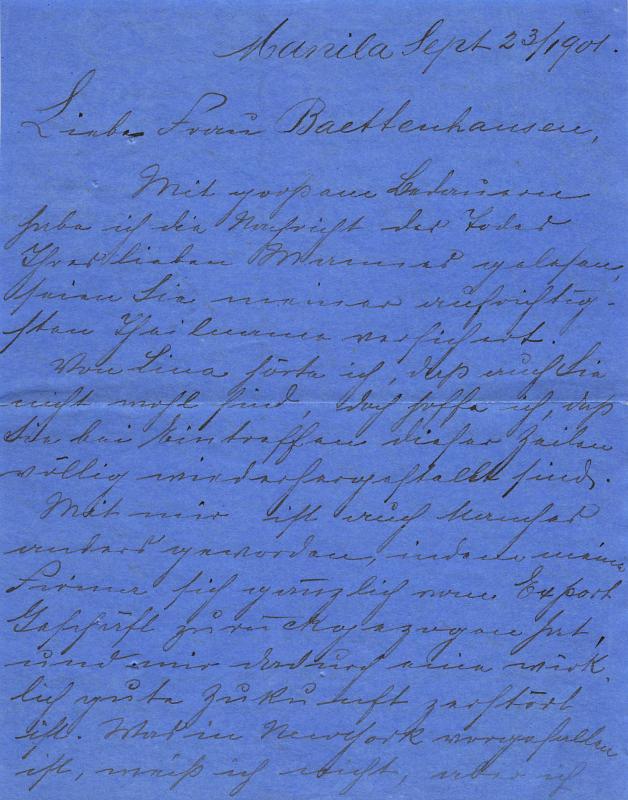 Manila Sept 23/1901.
Liebe Frau Baettenhausen,
Mit großem Bedauern
habe ich die Nachricht des Todes
Ihres lieben Mannes gelesen,
seien Sie meiner aufrichtig-
sten Theilname versichert.
Von Lina hörte ich, daß auch Sie
nicht wohl sind, doch hoffe ich, daß
Sie bei Eintreffen dieser Zeilen
völlig wiederhergestellt sind.
Mit mir ist auch Manches
anders geworden, indem meine
Firma sich gänzlich vom Export
Geschäft zurückgezogen hat,
und mir dadurch eine wirk
lich gute Zukunft zerstört
ist. Was in Newyork vorgefallen
ist, weiß ich nicht, aber ich